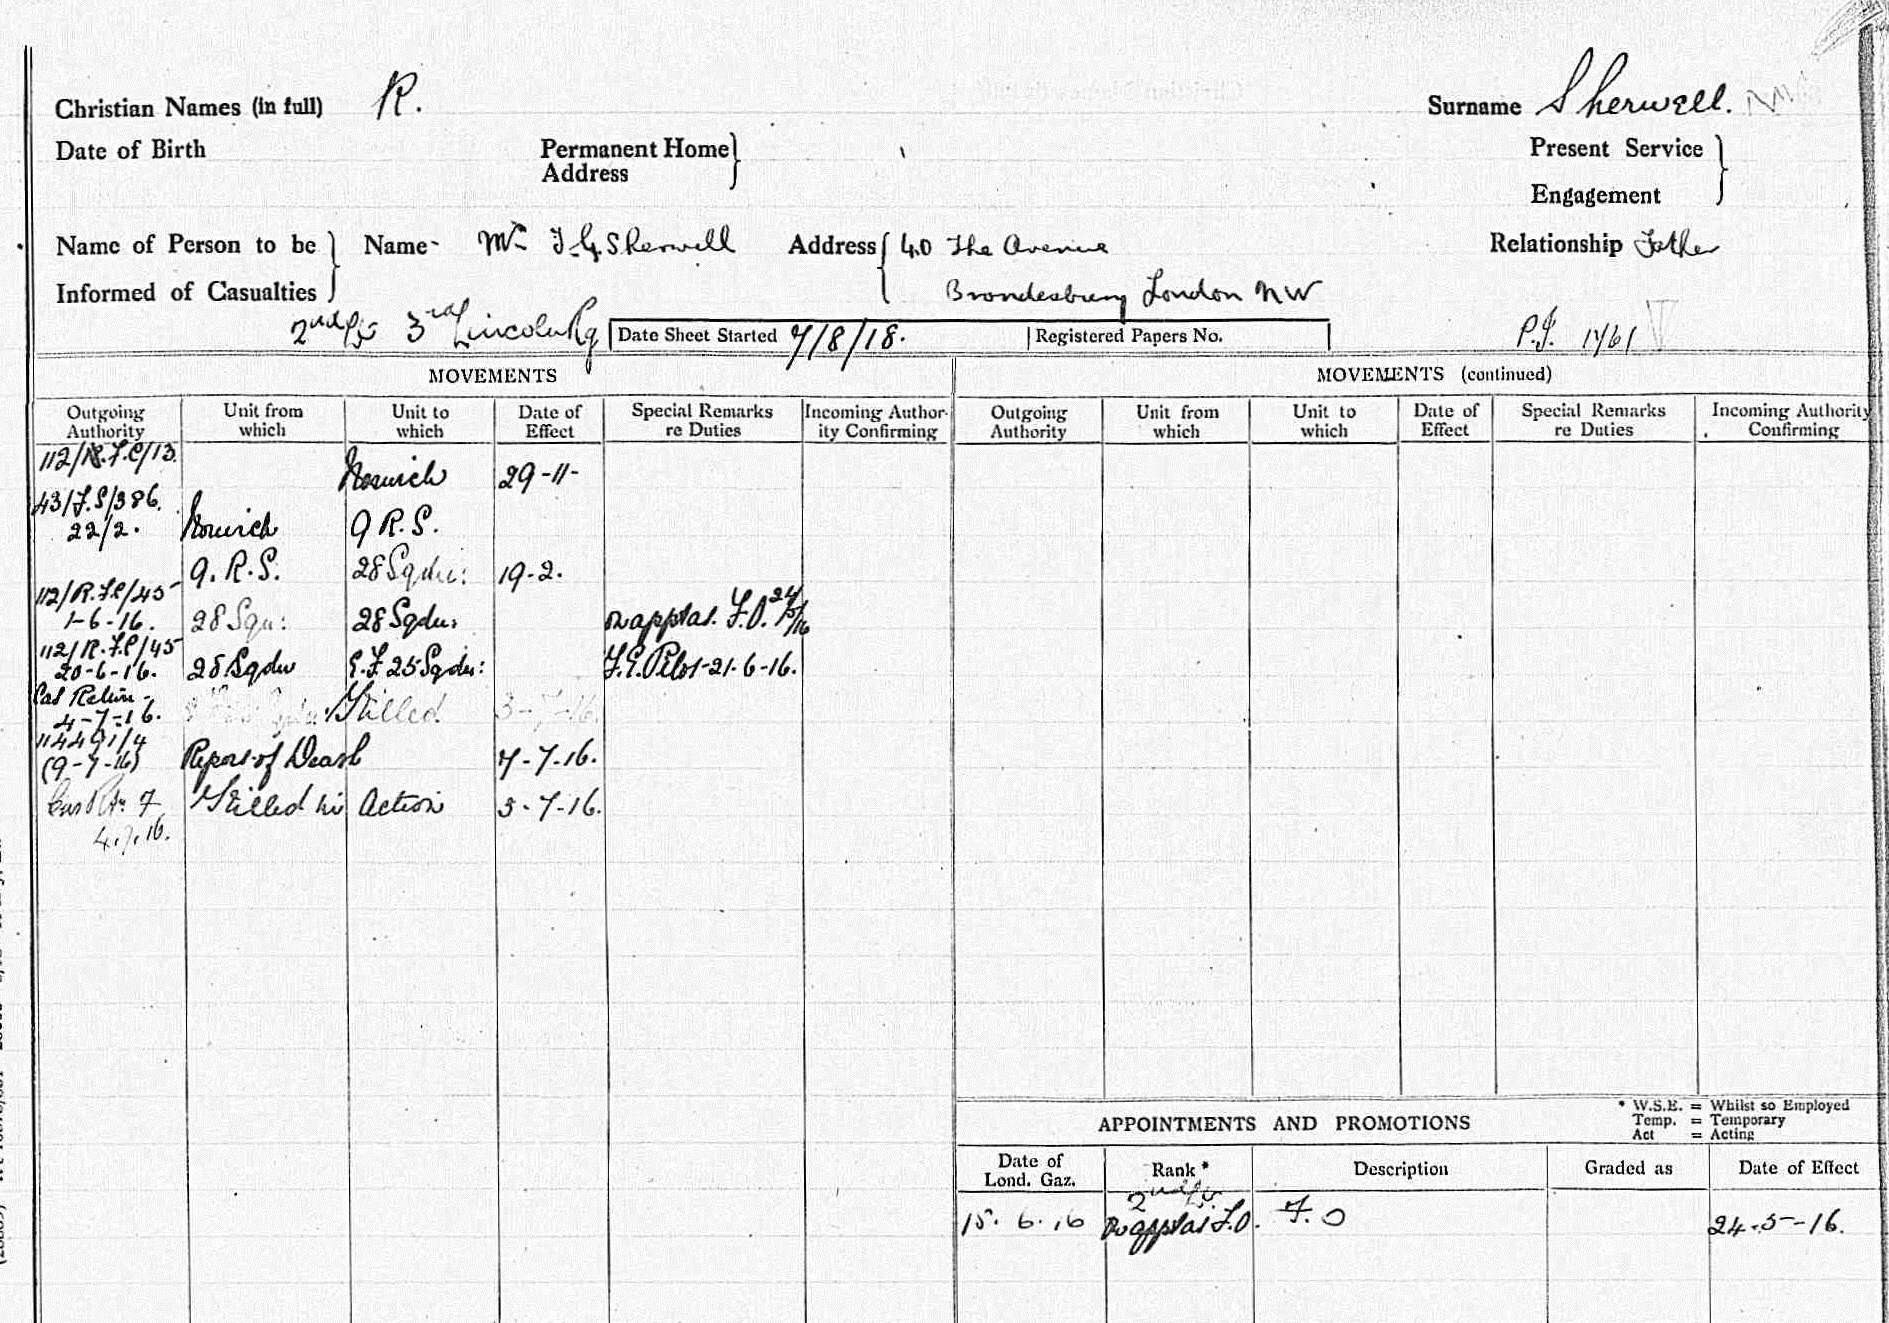 Christian Names (in full) R. Surname Sherwell.
Date of Birth Permanent Home Address Present Service
Engagement
Name of Person to be Informed of Casualties Name - Mr F. G. Sherwell Address 40 The Avenue Relationship Father
Brondesbury London NW
2nd Lt 3rd Lincoln Rg Date Sheet Started 7/8/18. Registered Papers No. P.I. 1761
MOVEMENTS MOVEMENTS (continued)
Outgoing Authority Unit from which Unit to which Date of Effect Special Remarks re Duties Incoming Authority Confirming Outgoing Authority Unit from which Unit to which Date of Effect Special Remarks re Duties Incoming Authority Confirming
112/R.F.C/13. Norwich 29-11-
43/F.S/386.
22/2. Norwich 9 R.S.
9. R.S. 28 Sqdn: 19-2.
112/R.F.C/45
1-6-16. 28 Sqn: 28 Sqdn: on apptas. F.O. 24/5/16
112/R.F.C/45
20-6-16. 28 Sqdn E.F. 25 Sqdn: F.E. Pilot-21-6-16.
Cas Return -
4-7-16. Killed 3-7-16.
114491/4
(9-7-16) Report of Death 7-7-16.
Killed in Action 3-7-16.
4.7.16.
APPOINTMENTS AND PROMOTIONS
* W.S.E. = Whilst so Employed
Temp. = Temporary
Act = Acting
Date of Lond. Gaz. Rank * Description Graded as Date of Effect
2nd Lt.
15. 6. 16 on apptas F.O. F. O 24-5-16.